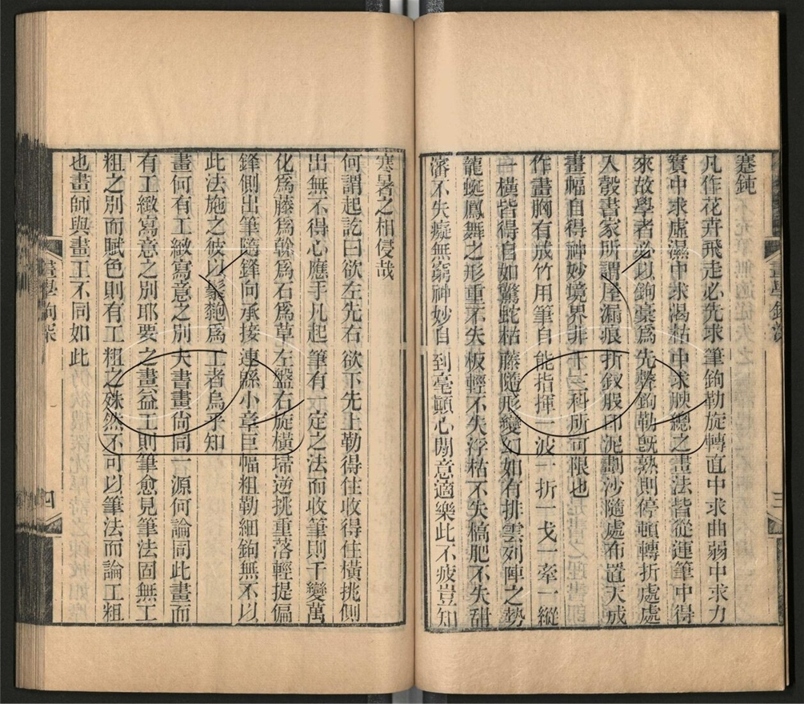 蹇鈍
凡作花卉飛走必先求筆鉤勒旋轉直中求曲弱中求力
實中求虛濕中求渴枯中求腴總之畫法皆從運筆中得
來故學者必以鉤稾爲先聲鉤勒旣熟則停頓轉折處處
入彀書家所謂屋漏痕折釵股印泥劃沙隨處布置天成
畫幅自得神妙境界非十三科所可限也
作畫胸有成竹用筆自能指揮一波一折一戈一牽一縱
一橫皆得自如驚蛇枯藤隨形變幻如有排雲列陣之勢
龍蜒鳳舞之形重不失板輕不失浮枯不失槁肥不失甜
瀋不失癡無窮神妙自到毫顚心閒意適樂此不疲豈知
寒暑之相侵哉
何謂起訖曰欲左先右欲下先上勒得住收得住橫挑側
出無不得心應手凡起筆有一定之法而收筆則千變萬
化爲藤爲榦爲石爲草左盤右旋橫埽逆挑重落輕提偏
鋒側出筆隨鋒向承接連緜小章巨幅粗勒細鉤無不以
此法施之彼以鬆爲工者烏乎知
畫何有工緻寫意之別夫書畫尙同一源何論同此畫而
有工緻寫意之別耶要之畫益工則筆愈見筆法固無工
粗之別而賦色則有工粗之殊然不可以筆法而論工粗
也畫師與畫工不同如此
三
四